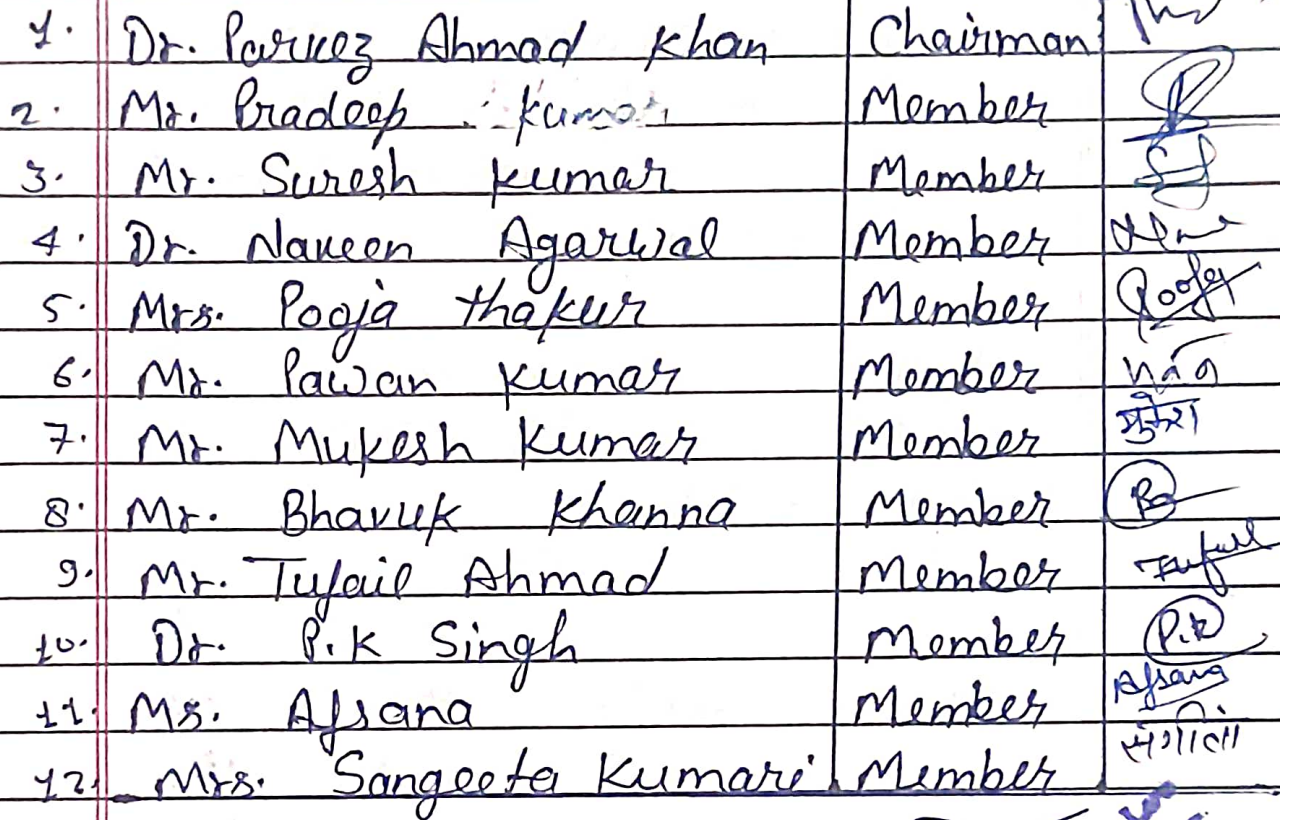 1. Dr. Parvez Ahmad Khan Chairman
2. Mr. Pradeep Kumar Member
3. Mr. Suresh Kumar Member
4. Dr. Naveen Agarwal Member
5. Mrs. Pooja Thakur Member Pooja
6. Mr. Pawan Kumar Member
7. Mr. Mukesh Kumar Member मुकेश
8. Mr. Bhavuk Khanna Member
9. Mr. Tufail Ahmad Member Tufail
10. Dr. P.K Singh Member P.K
11. Ms. Afsana Member Afsana
12. Mrs. Sangeeta Kumari Member संगीता